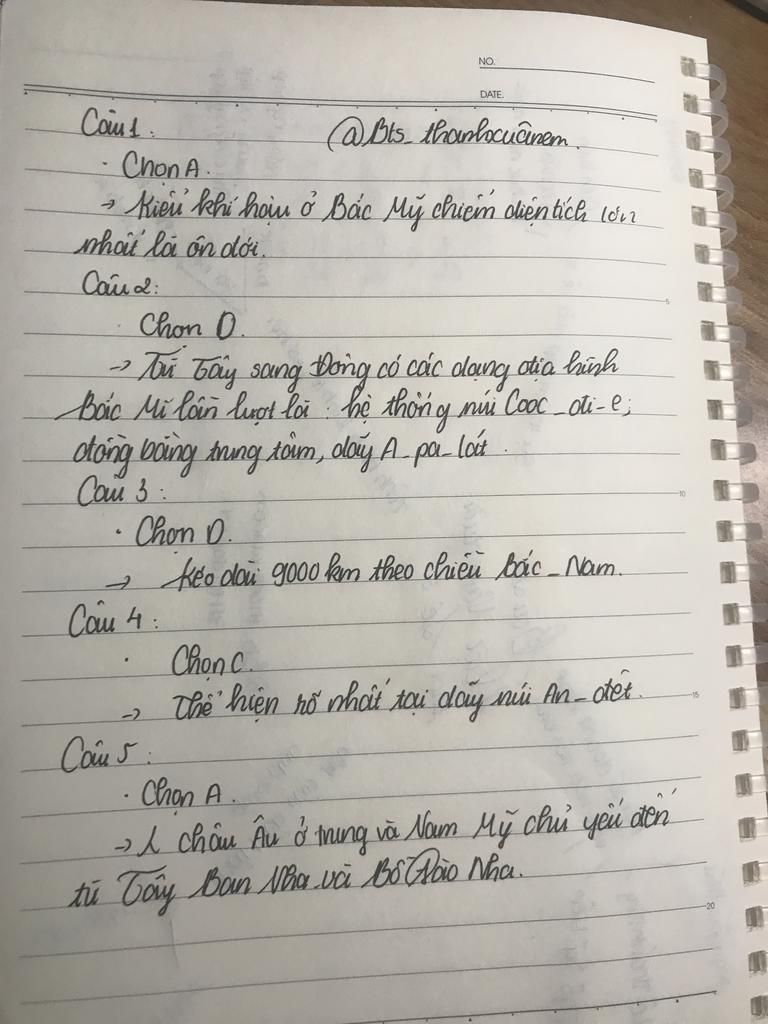 NO.
DATE.
Câu 1: @Bts_thanhocuânem.
· Chọn A.
→ Kiểu khí hậu ở Bắc Mỹ chiếm diện tích lớn
nhất là ôn đới.
Câu 2:
· Chọn D.
→ Từ Tây sang Đông có các dạng địa hình
Bắc Mĩ lần lượt là: hệ thống núi Cooc_đi_e,
đồng bằng trung tâm, dãy A_pa_lát.
5
Câu 3:
10
· Chọn D.
→ Kéo dài 9000 km theo chiều Bắc_Nam.
Câu 4:
· Chọn C.
→ Thể hiện rõ nhất tại dãy núi An_đét.
15
Câu 5:
· Chọn A.
→ châu Âu ở trung và Nam Mỹ chủ yếu đến
từ Tây Ban Nha và Bồ Đào Nha.
20